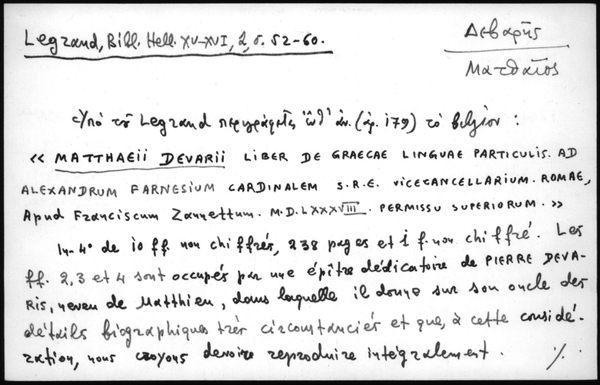 Legrand, Bibl. Hell. XV-XVI, 2, σ. 52-60.
Δεβαρῆς
Ματθαῖος
Ὑπὸ τοῦ Legrand περιγράφεται ὧδ' (ἀρ. 179) τὸ βιβλίον :
« MATTHAEII DEVARII LIBER DE GRAECAE LINGUAE PARTICULIS. AD
ALEXANDRUM FARNESIUM CARDINALEM S.R.E. VICECANCELLARIUM. ROMAE,
Apud Franciscum Zannettum. M.D.LXXXVIII. PERMISSU SUPERIORUM. »
In-4° de 10 ff. non chiffrés, 238 pages et 1 f. non chiffré. Les
ff. 2, 3 et 4 sont occupés par une épître dédicatoire de PIERRE DEVA-
RIS, neveu de Matthieu, dans laquelle il donne sur son oncle des
détails biographiques très circonstanciés et que, à cette considé-
ration, nous croyons devoire reproduire intégralement. ./.